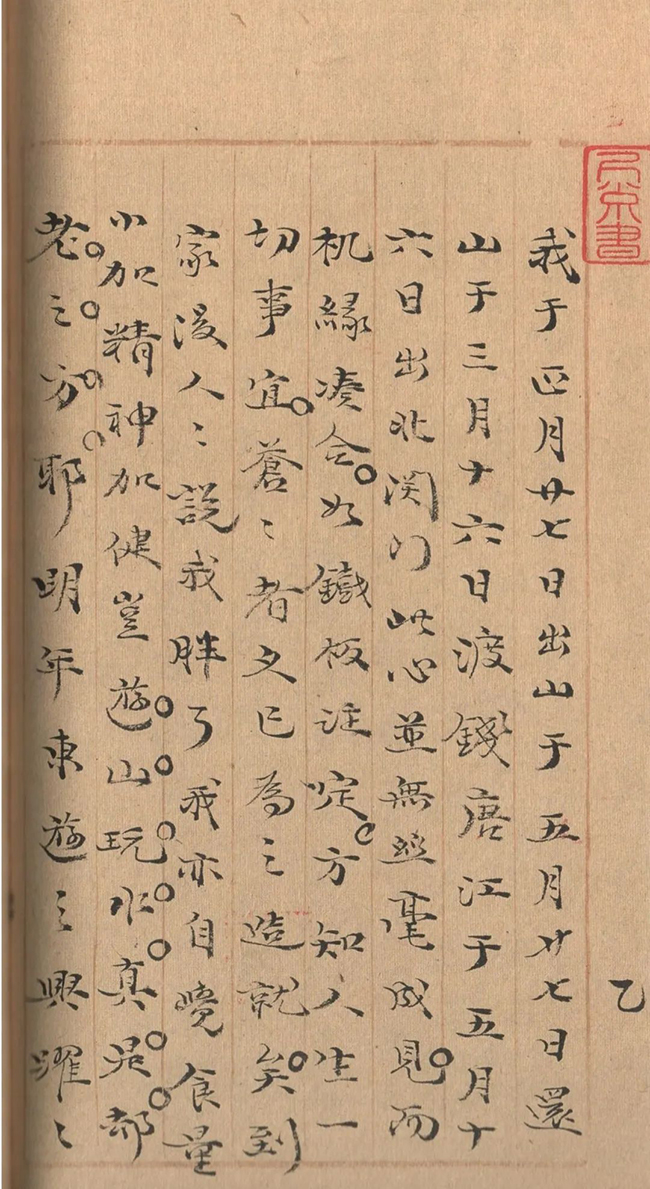 我于正月廿七日出山于五月廿七日還
山于三月十六日渡錢唐江于五月十
六日出北関门此心並無丝毫成見而
机緣凑合如鐵板註啶方知人生一
切事宜蒼〻者久已為之造就矣到
家後人〻說我胖了我亦自覺食量
小加精神加健豈遊山玩水真是却
老之方耶明年東遊之興躍〻
乙